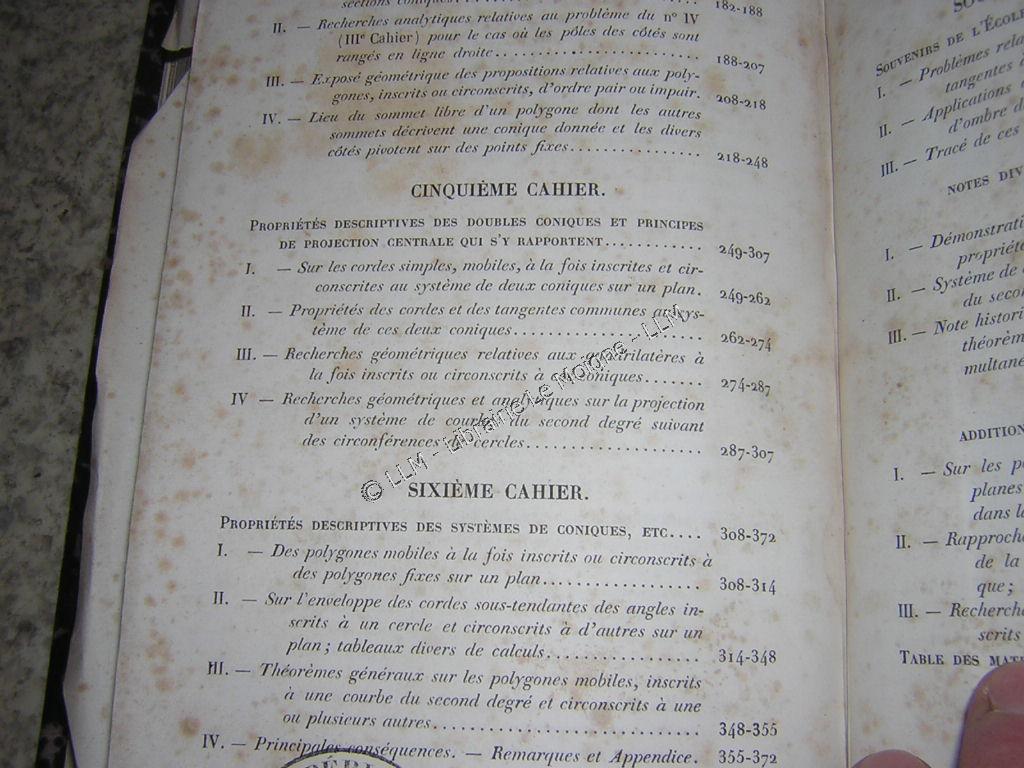 sections coniques. 182-188
II. — Recherches analytiques relatives au problème du n° IV
(IIIe Cahier) pour le cas où les pôles des côtés sont
rangés en ligne droite........................ 188-207
III. — Exposé géométrique des propositions relatives aux poly-
gones, inscrits ou circonscrits, d'ordre pair ou impair. 208-218
IV. — Lieu du sommet libre d'un polygone dont les autres
sommets décrivent une conique donnée et les divers
côtés pivotent sur des points fixes................ 218-248
CINQUIÈME CAHIER.
PROPRIÉTÉS DESCRIPTIVES DES DOUBLES CONIQUES ET PRINCIPES
DE PROJECTION CENTRALE QUI S'Y RAPPORTENT............ 249-307
I. — Sur les cordes simples, mobiles, à la fois inscrites et cir-
conscrites au système de deux coniques sur un plan. 249-262
II. — Propriétés des cordes et des tangentes communes au sys-
tème de ces deux coniques...................... 262-274
III. — Recherches géométriques relatives aux quadrilatères à
la fois inscrits ou circonscrits à des coniques....... 274-287
IV — Recherches géométriques et analytiques sur la projection
d'un système de courbes du second degré suivant
des circonférences de cercles..................... 287-307
© LLM - Librairie Le Moigne - LLM
SIXIÈME CAHIER.
PROPRIÉTÉS DESCRIPTIVES DES SYSTÈMES DE CONIQUES, ETC.... 308-372
I. — Des polygones mobiles à la fois inscrits ou circonscrits à
des polygones fixes sur un plan.................. 308-314
II. — Sur l'enveloppe des cordes sous-tendantes des angles in-
scrits à un cercle et circonscrits à d'autres sur un
plan; tableaux divers de calculs.................. 314-348
III. — Théorèmes généraux sur les polygones mobiles, inscrits
à une courbe du second degré et circonscrits à une
ou plusieurs autres.............................. 348-355
IV. — Principales conséquences. — Remarques et Appendice. 355-372
SOUVENIRS DE L'ÉCOLE
I. — Problèmes
tangentes
II. — Applications
d'ombre
III. — Tracé de ces
NOTES
I. —
II. — Système de
du
III. — Note
ADDITION
I. — Sur les
planes
dans
II. —
de la
que;
III. —
TABLE DES